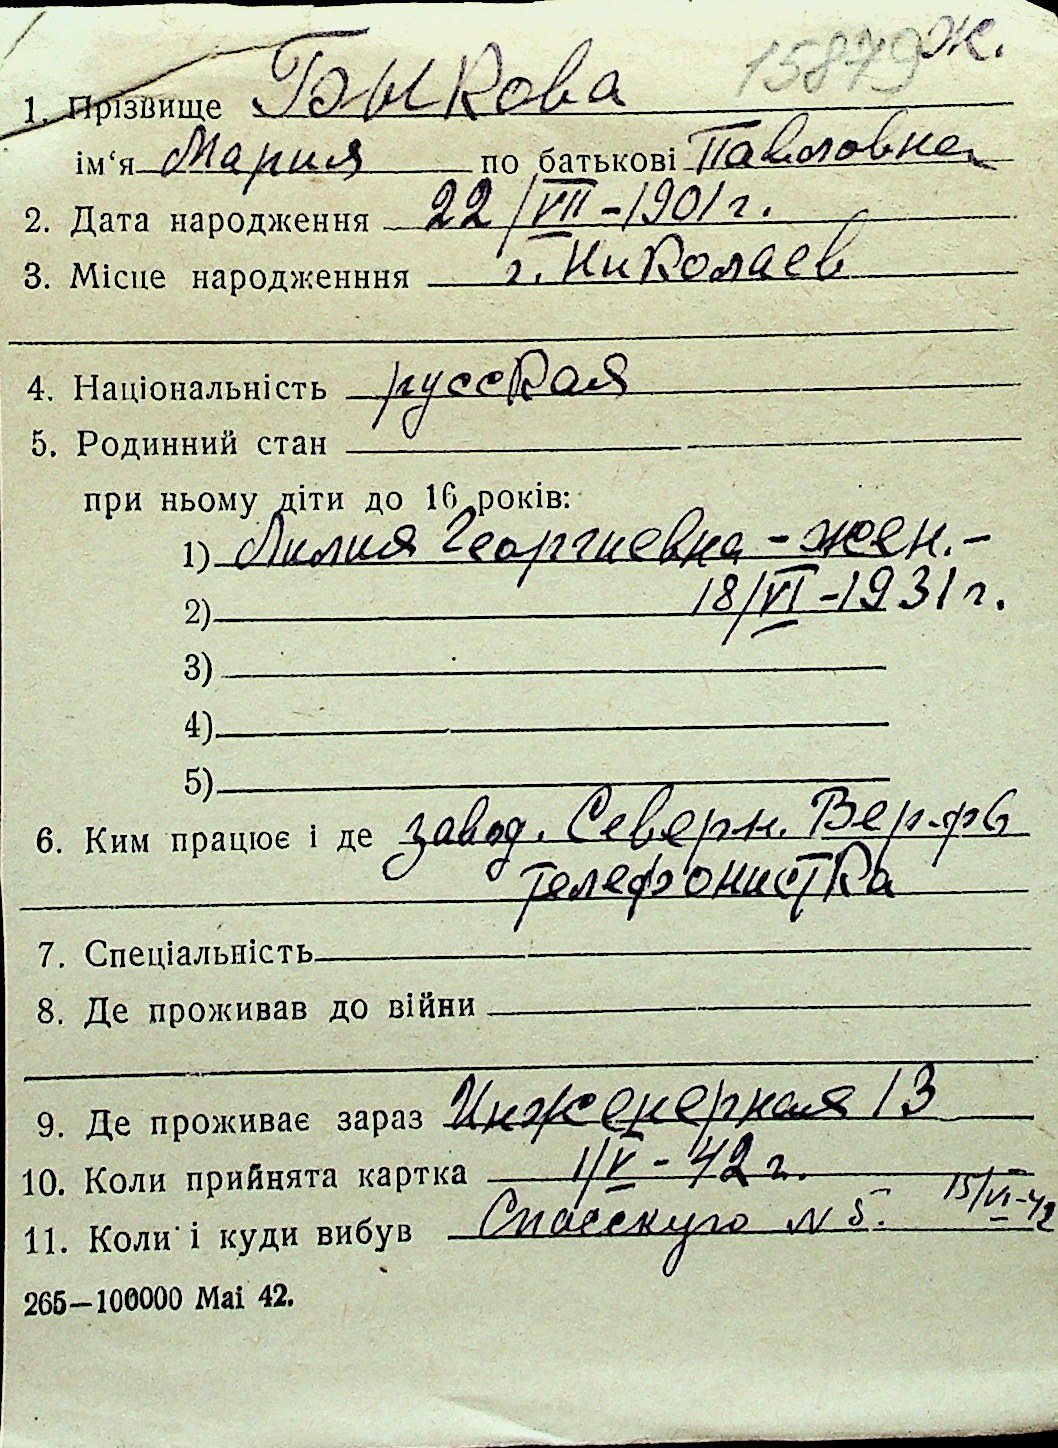 15879 ж.
1. Прізвище Быкова
ім‘я Мария по батькові Павловна
2. Дата народження 22/VII-1901 г.
3. Місце народженння г. Николаев
4. Національність русская
5. Родинний стан
при ньому діти до 16 років:
1) Лилия Георгиевна - жен. -
2) 18/VI-1931 г.
3)
4)
5)
6. Ким працює і де завод. Северн. Верфь
телефонистка
7. Спеціальність
8. Де проживав до війни
9. Де проживає зараз Инженерная 13
10. Коли прийнята картка 1/V-42 г.
11. Коли і куди вибув Спасскую N 5. 15/VI-42
265—100000 Mai 42.